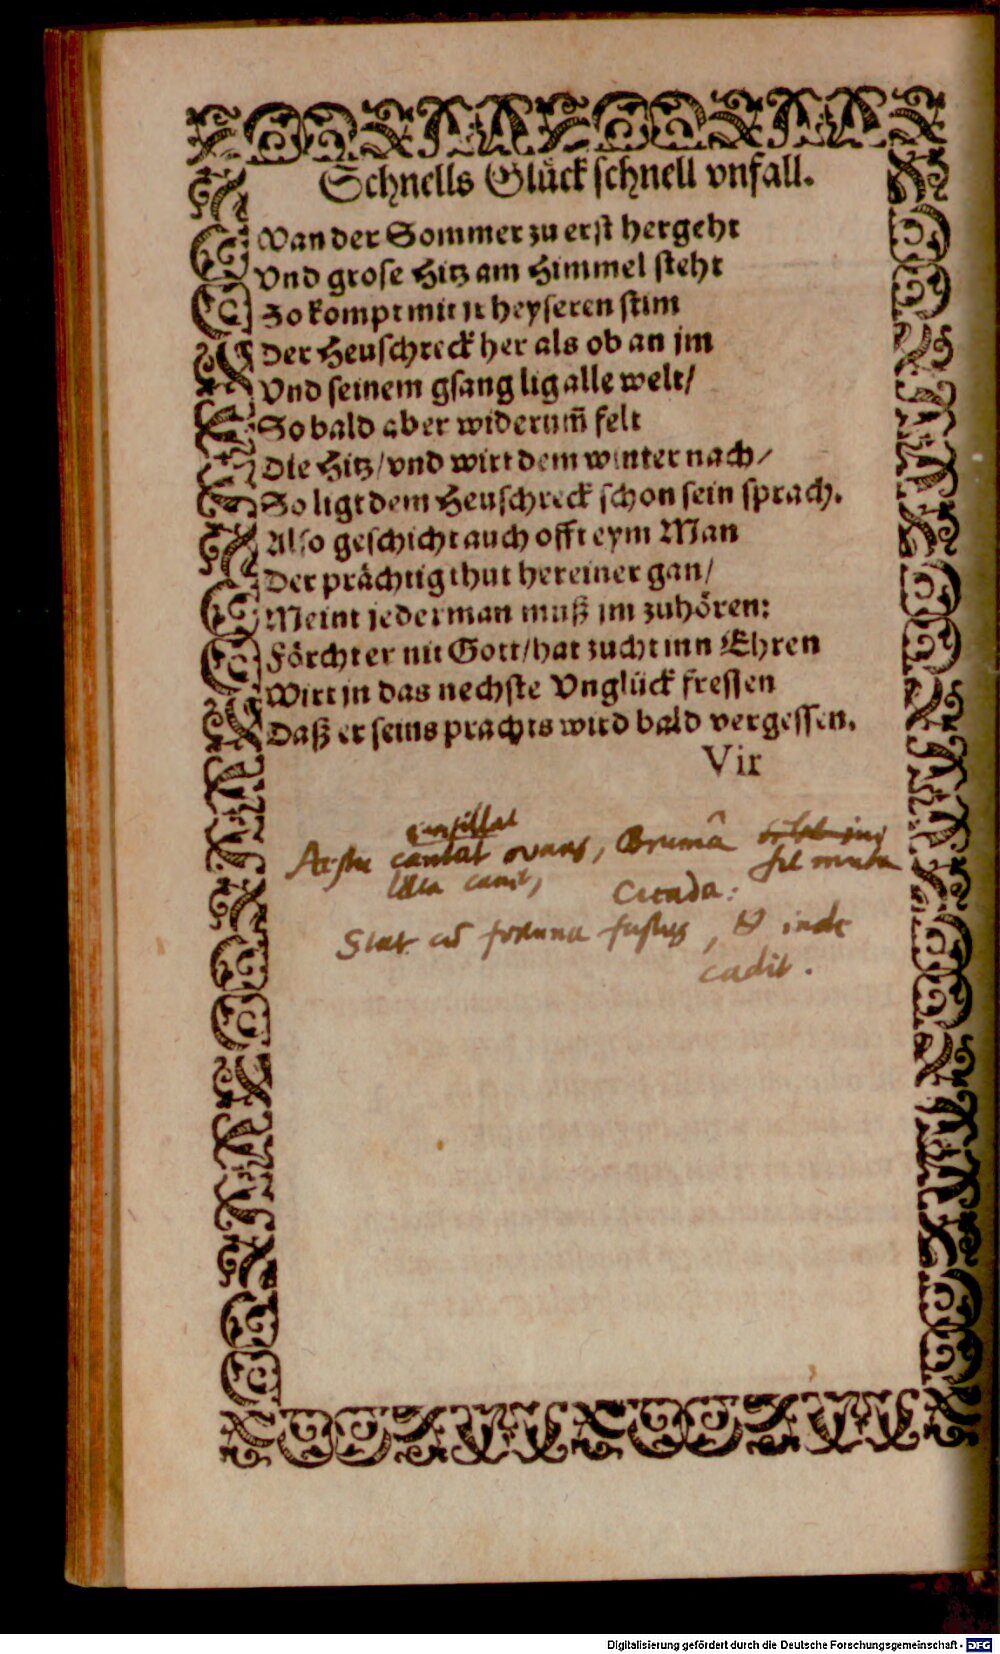 Schnells Glück schnell vnfall.
Wan der Sommer zu erst hergeht
Vnd grose Hitz am Himmel steht
So kompt mit jr heyseren stim
Der Heuschreck her als ob an jm
Vnd seinem gsang lig alle welt/
So bald aber widerum̃ felt
Die Hitz/vnd wirt dem winter nach/
So ligt dem Heuschreck schon sein sprach.
Also geschicht auch offt eym Man
Der prächtig thut hereiner gan/
Meint jederman muß jm zuhören:
Förcht er nit Gott/hat zucht inn Ehren
Wirt jn das nechste Vnglück fressen
Daß er seins prachts wird bald vergessen.
Vir
cantat ovans, Brumâ
sil muta
canit, Cicada:
Stat cū fortuna fastus, & inde
cadit.
Digitalisierung gefördert durch die Deutsche Forschungsgemeinschaft - DFG